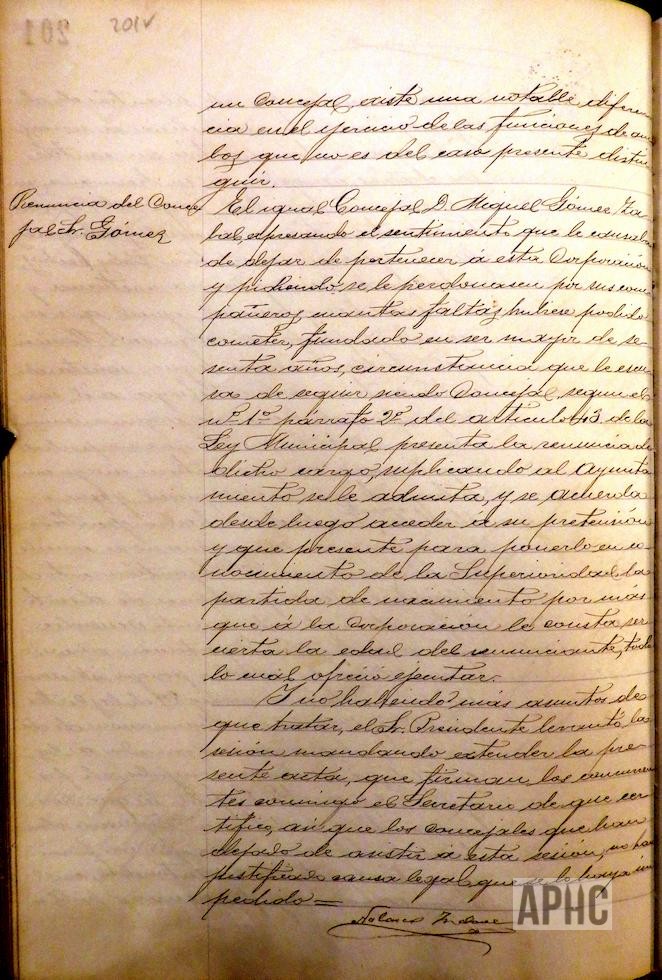 201v
201
un Concejal existe una notable diferen
cia en el ejercicio de las funciones de am
bos que no es del caso presente distin
guir.
Renuncia del Conce
jal Sr. Gómez
El igual Concejal D. Miguel Gómez Za
bal, expresando el sentimiento que le causaba
de dejar de pertenecer á esta Corporación
y pidiendo se le perdonasen por sus com
pañeros cuantas faltas hubiese podido
cometer, fundado en ser mayor de se
senta años, circunstancia que le escu
sa de seguir siendo Concejal, segun el
nº 1º párrafo 2º del articulo 43 de la
Ley Municipal presenta la renuncia de
dicho cargo, suplicando al Ayunta
miento se le admita, y se acuerda
desde luego acceder á su pretensión
y que presente para ponerlo en co
nocimiento de la Superioridad la
partida de nacimiento por más
que á la Corporación le consta ser
cierta la edad del renunciante, todo
lo cual ofreció ejecutar.
Y no habiendo más asuntos de
que tratar, el Sr. Presidente levantó la
sesión mandando extender la pre
sente acta, que firman los concurren
tes conmigo el Secretario de que cer
tifico, asi que los concejales que han
dejado de asistir á esta sesión, no han
justificado causa legal que se lo haya im
pedido =
APHC